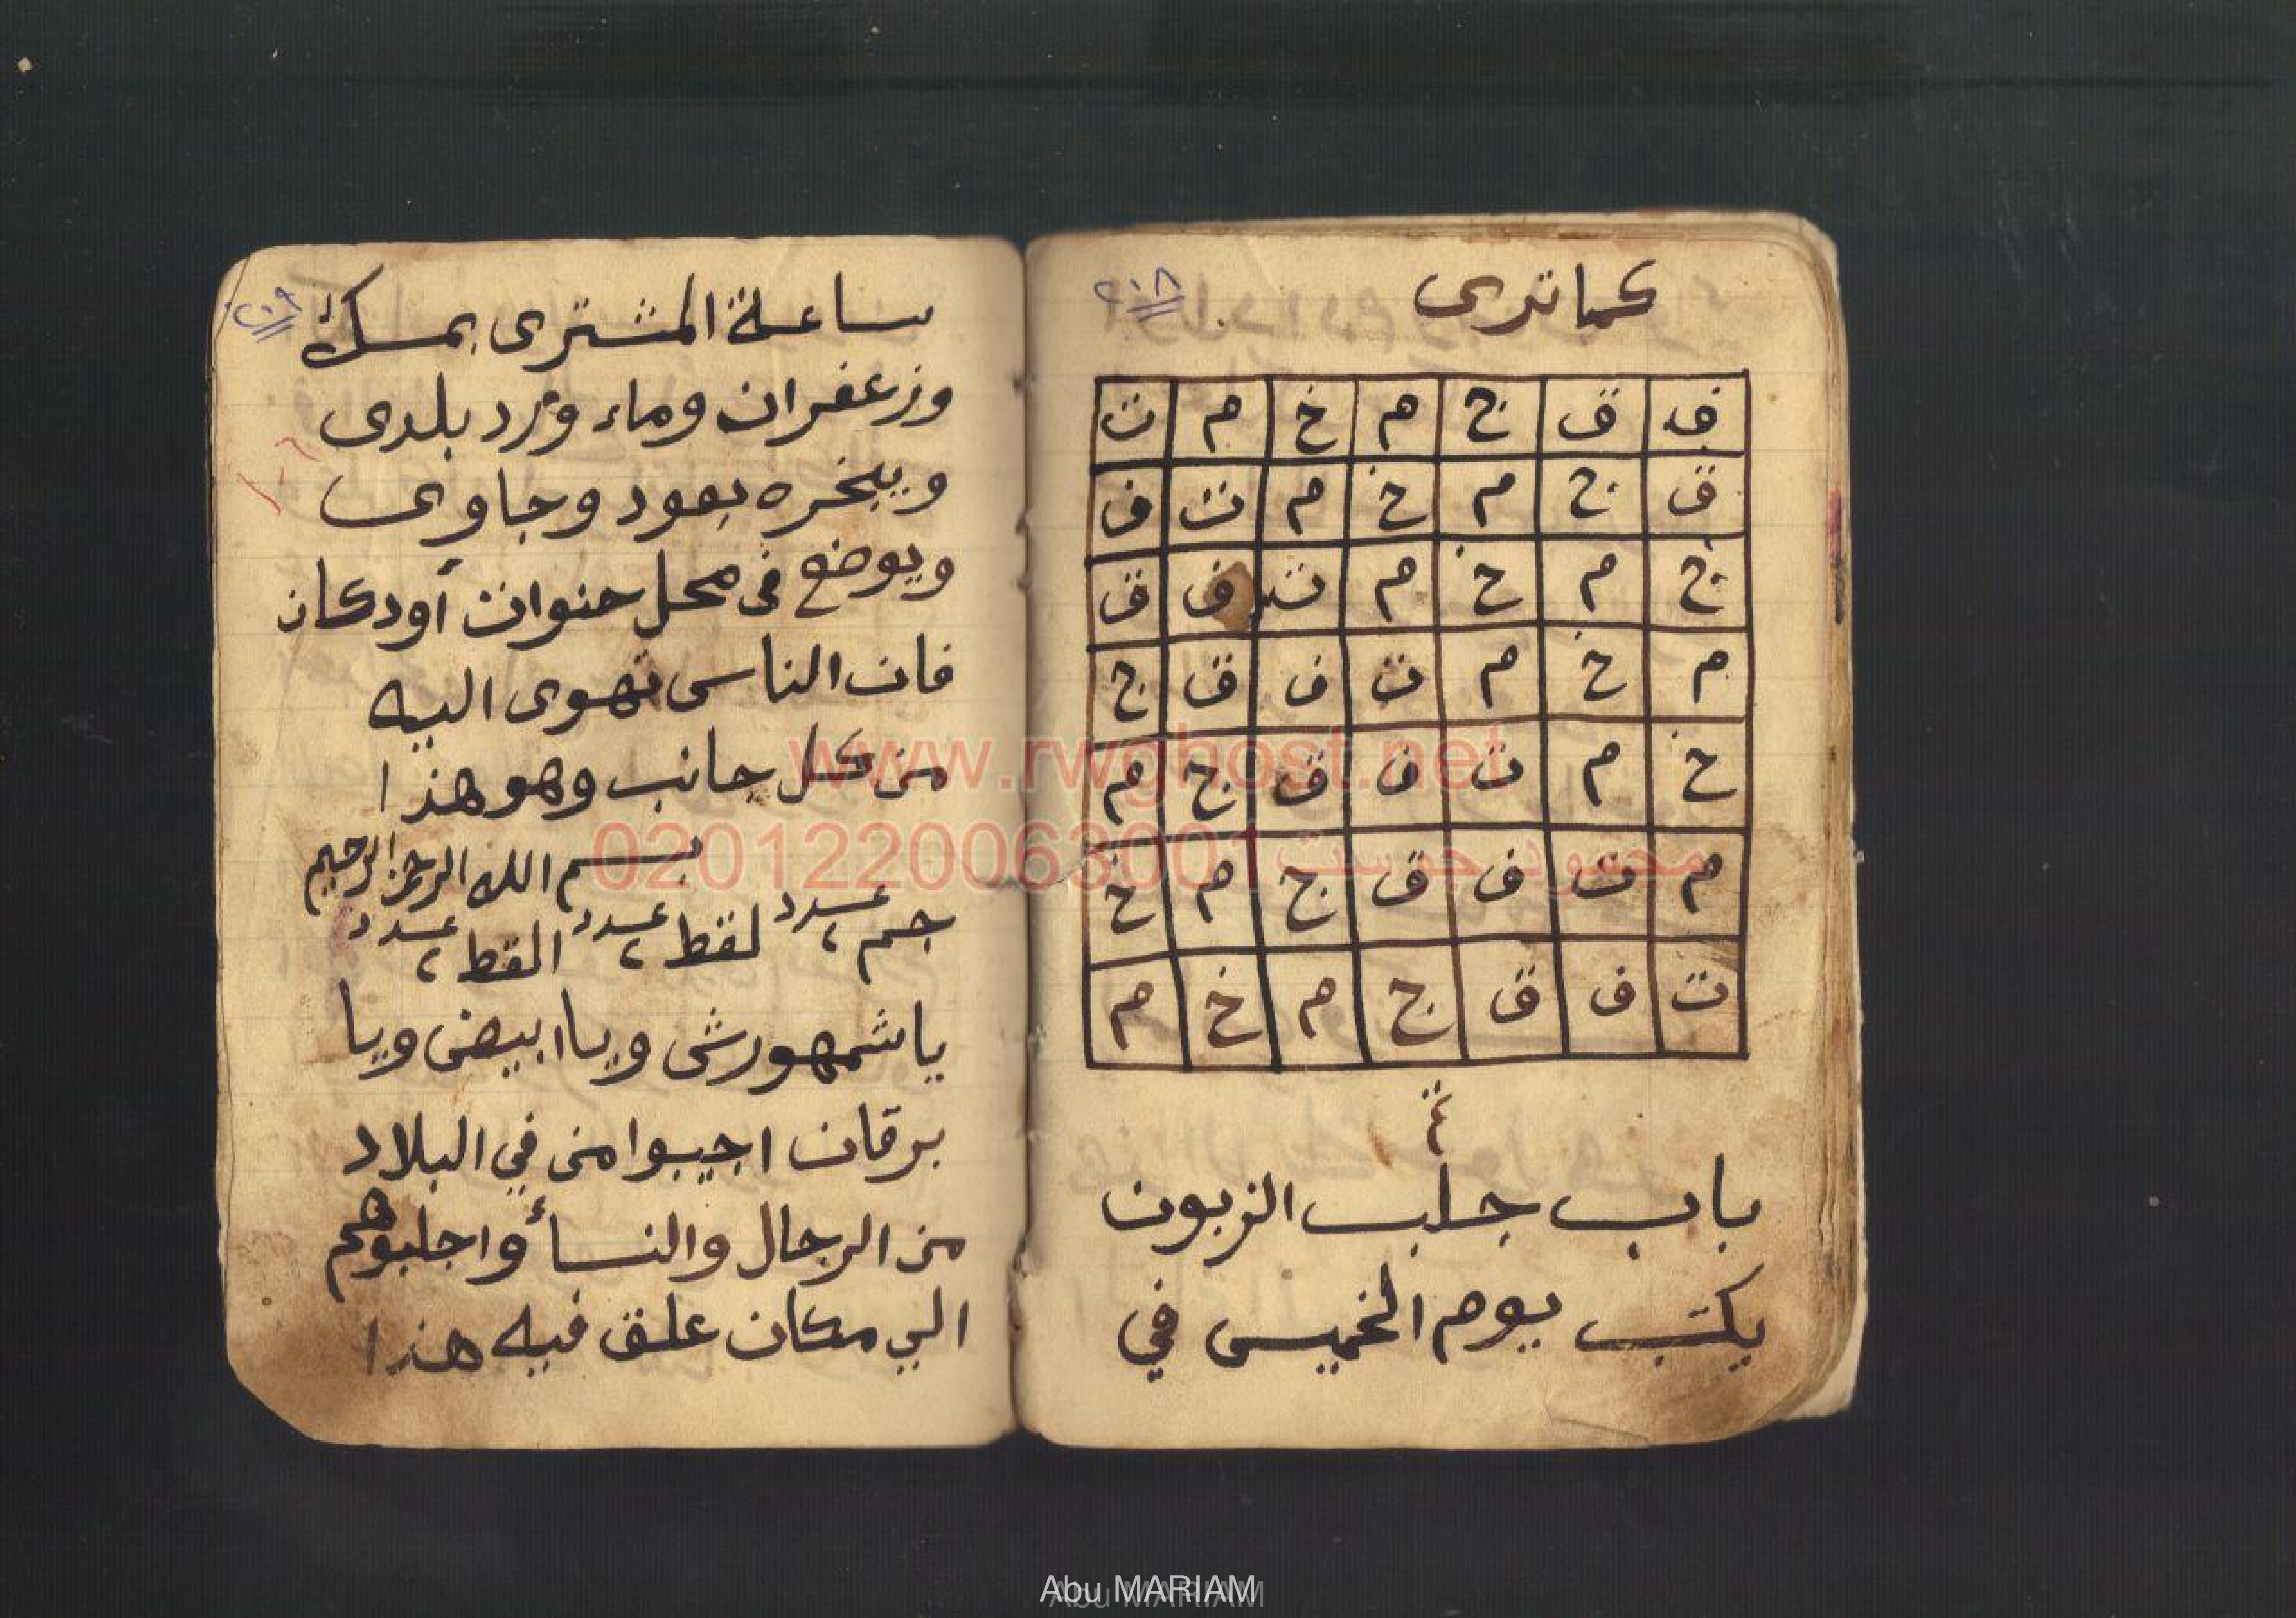 ٢٠٨
كما ترى
ف ق ج م خ م ت
ق ج م خ م ت ف
ج م خ م ت ف ق
م خ م ت ف ق ج
خ م ت ف ق ج م
م ت ف ق ج م خ
ت ف ق ج م خ م
باب جلب الزبون
يكتب يوم الخميس في
٢٠٩
ساعة المشترى بمسك
وزعفران وماء ورد بلدى
ويبخره بعود وجاوى
ويوضع فى محل حنوات أودكان
فان الناس تهوى اليه
من كل جانب وهو هذا
بسم الله الرحمن الرحيم
جم عدد ٢ لقط عدد ٢ القط عدد ٢
يا شمهورش ويا ابيض ويا
برقان اجيبوا من في البلاد
من الرجال والنسأ واجلبوهم
الي مكان علق فيه هذا
www.rwghost.net
محمود جوست 0201220063001
Abu MARIAM